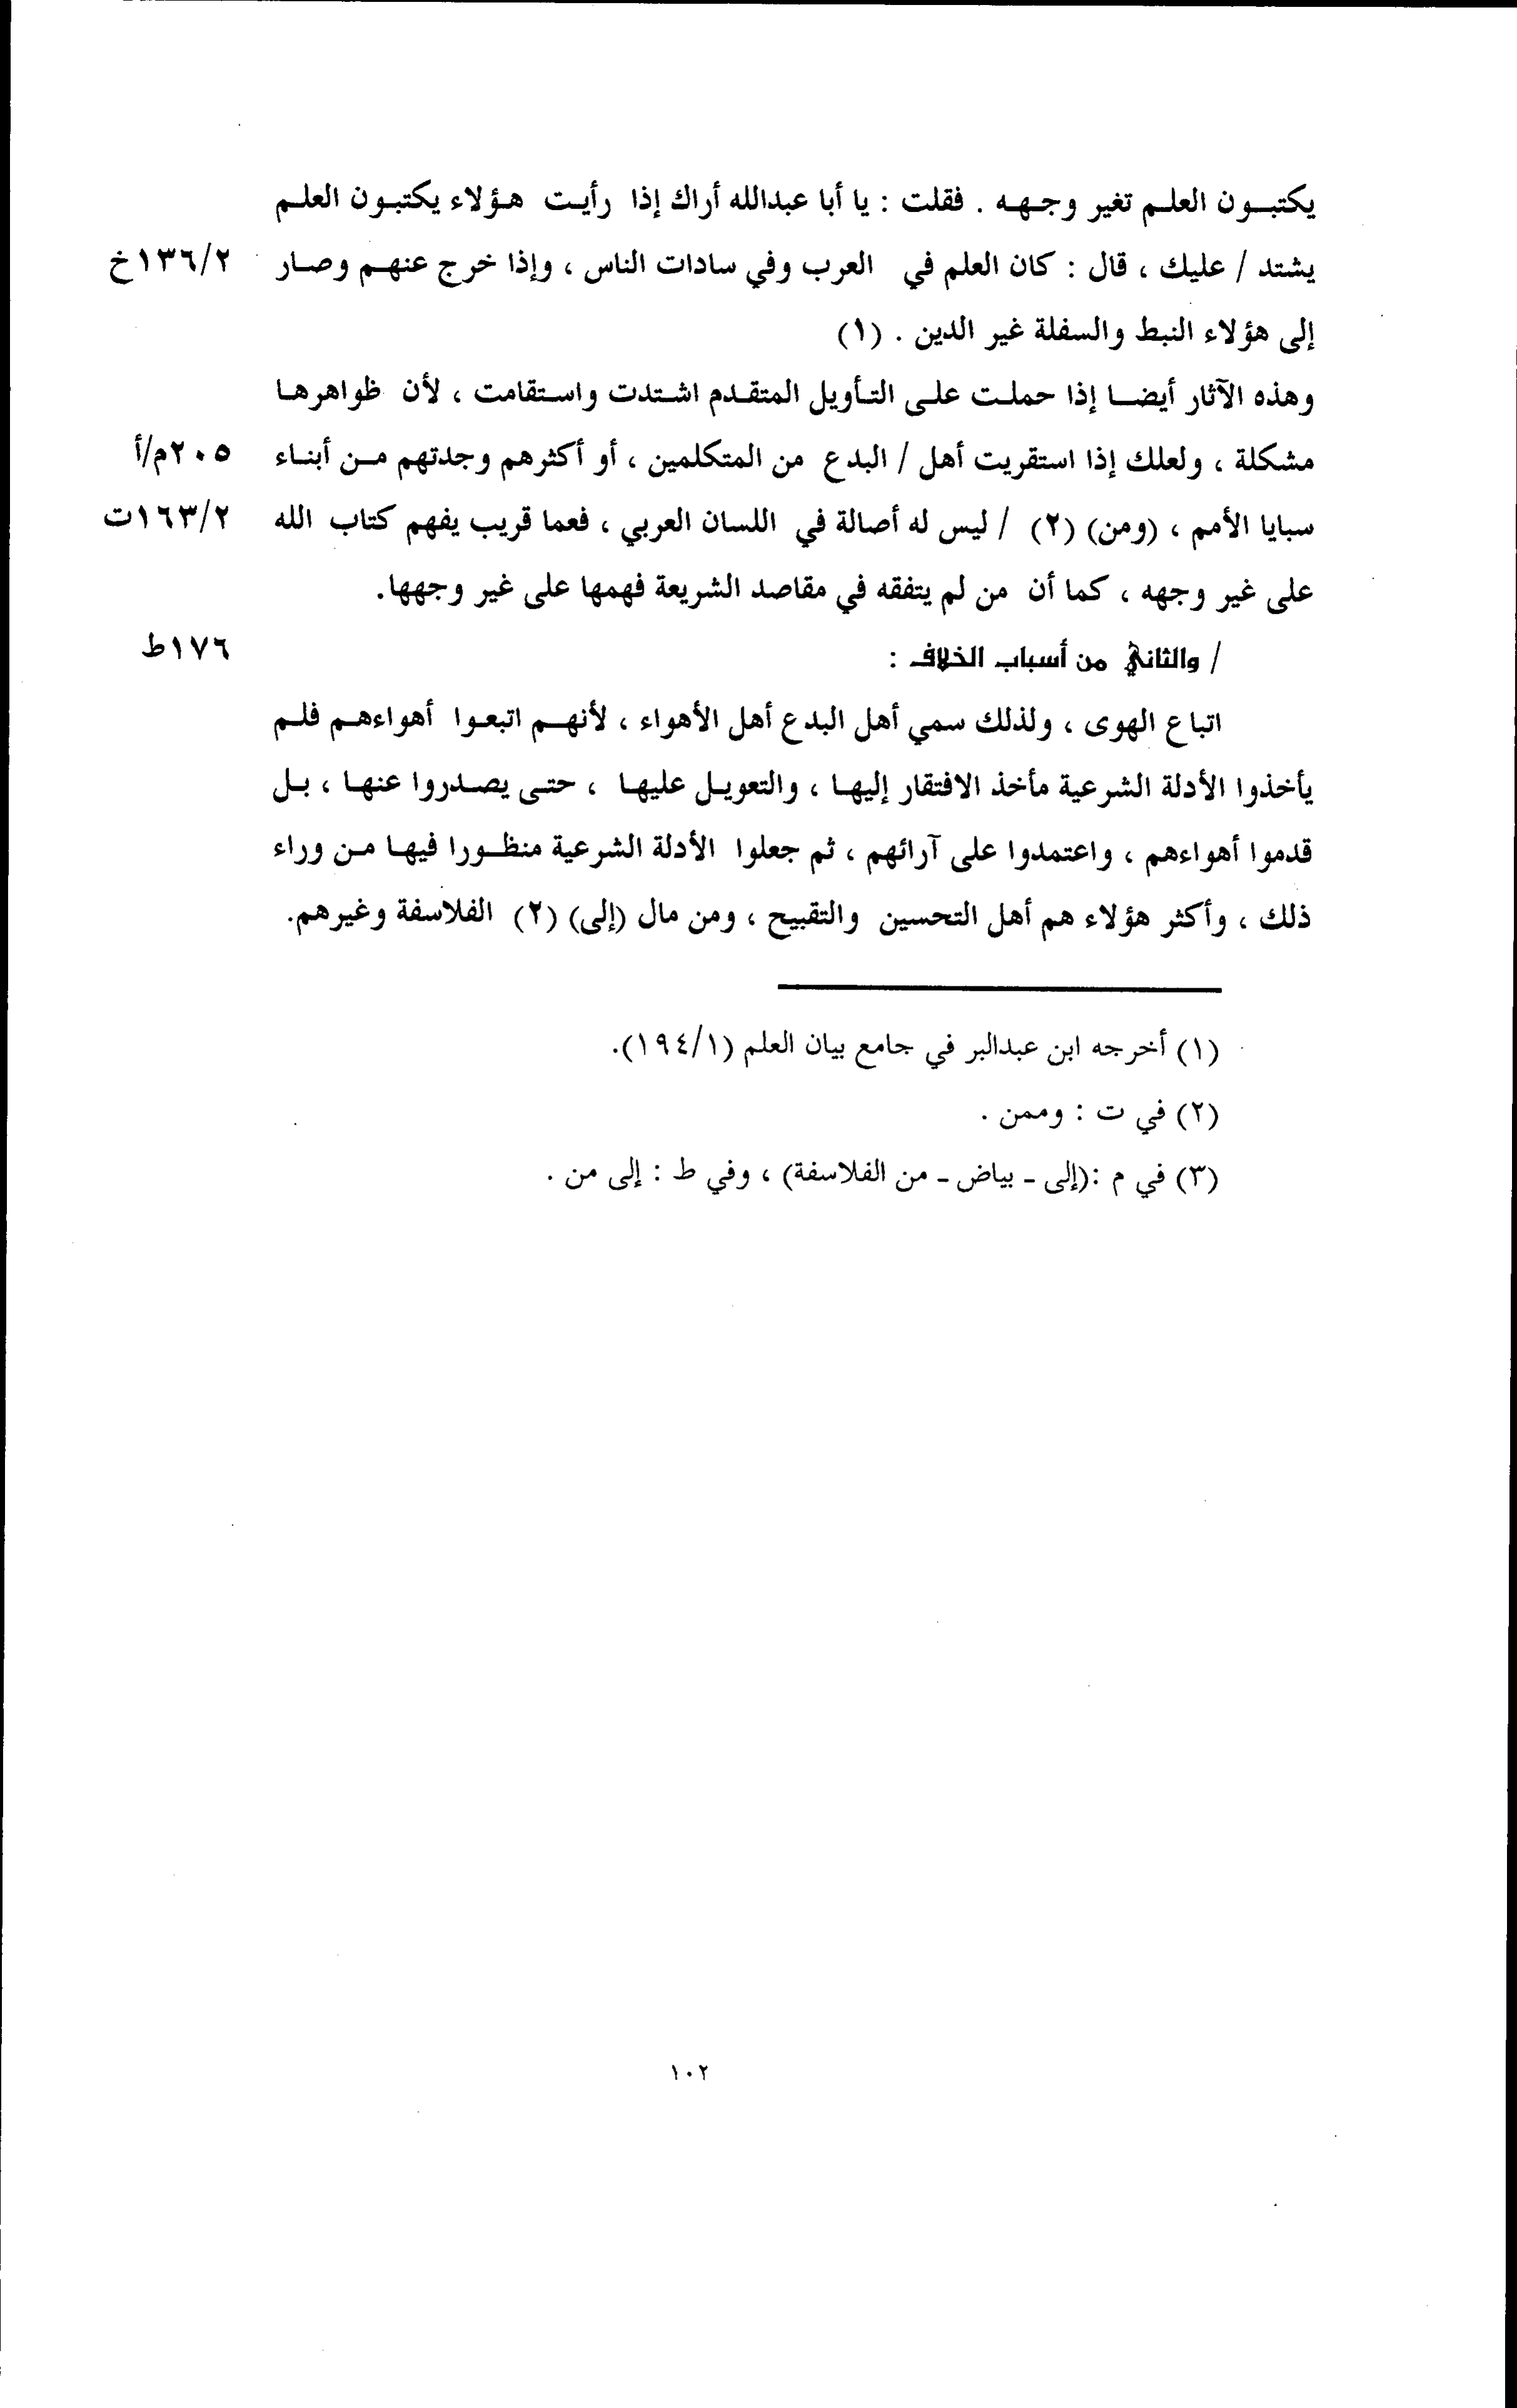 يكتبون العلم تغير وجهه . فقلت : يا أبا عبدالله أراك إذا رأيت هؤلاء يكتبون العلم
يشتد / عليك ، قال : كان العلم في العرب وفي سادات الناس ، وإذا خرج عنهم وصار ١٣٦/٢خ
إلى هؤلاء النبط والسفلة غير الدين . (١)
وهذه الآثار أيضا إذا حملت على التأويل المتقدم اشتدت واستقامت ، لأن ظواهرها
مشكلة ، ولعلك إذا استقريت أهل / البدع من المتكلمين ، أو أكثرهم وجدتهم من أبناء ٢٠٥م/أ
سبايا الأمم ، (ومن) (٢) / ليس له أصالة في اللسان العربي ، فعما قريب يفهم كتاب الله ١٦٣/٢ت
على غير وجهه ، كما أن من لم يتفقه في مقاصد الشريعة فهمها على غير وجهها.
/ والثاني من أسباب الخلاف : ١٧٦ط
اتباع الهوى ، ولذلك سمي أهل البدع أهل الأهواء ، لأنهم اتبعوا أهواءهم فلم
يأخذوا الأدلة الشرعية مأخذ الافتقار إليها ، والتعويل عليها ، حتى يصدروا عنها ، بل
قدموا أهواءهم ، واعتمدوا على آرائهم ، ثم جعلوا الأدلة الشرعية منظورا فيها من وراء
ذلك ، وأكثر هؤلاء هم أهل التحسين والتقبيح ، ومن مال (إلى) (٢) الفلاسفة وغيرهم.
(١) أخرجه ابن عبدالبر في جامع بيان العلم (١٩٤/١).
(٢) في ت : وممن .
(٣) في م :(إلى - بياض - من الفلاسفة) ، وفي ط : إلى من .
١٠٢